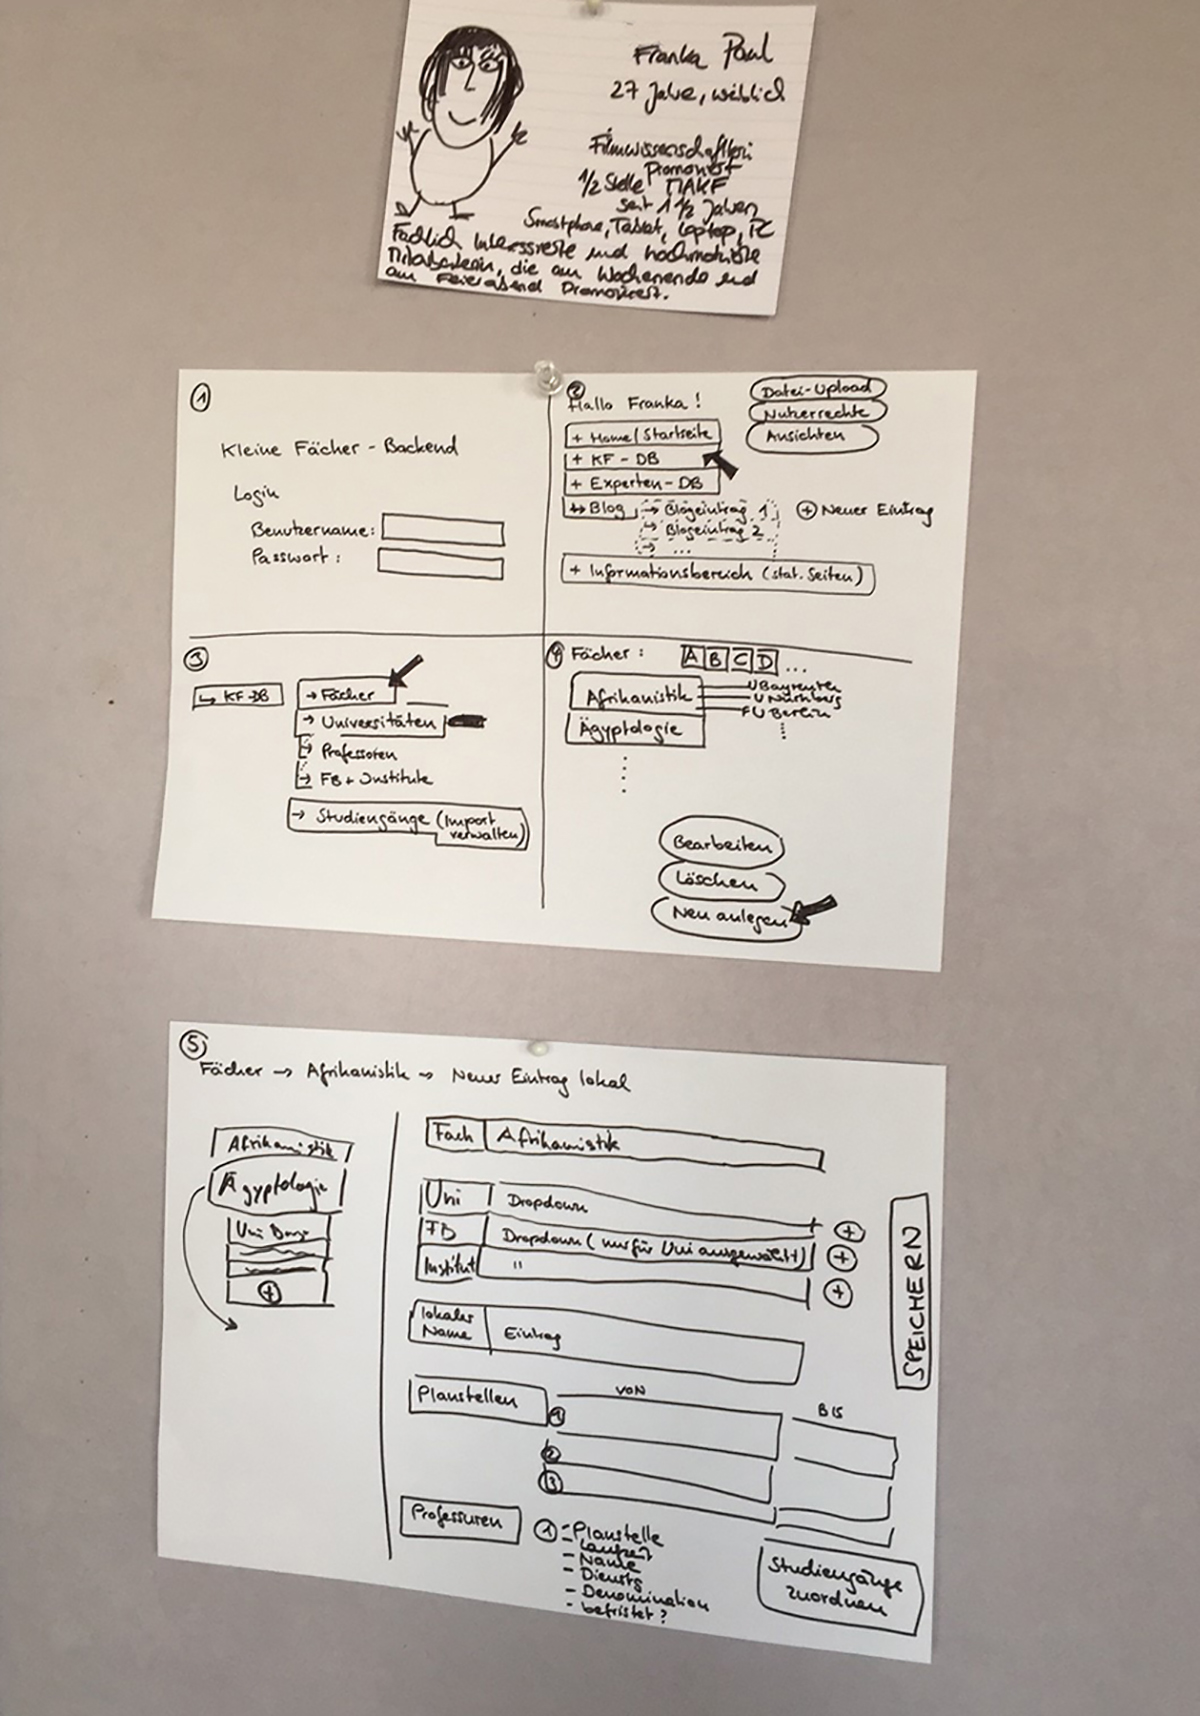 Franka Paul
27 Jahre, weiblich
Filmwissenschaftlerin
Promoviert
1/2 Stelle MAKF
seit 1 1/2 Jahren
Smartphone, Tablet, Laptop, PC
Fachlich interessierte und hochmotivierte
Mitarbeiterin, die am Wochenende und
am Feierabend Promoviert.
1
Kleine Fächer - Backend
Login
Benutzername:
Passwort:
2
Hallo Franka!
+ Home/Startseite
+ KF - DB
+ Experten - DB
↳ Blog
→ Blogeintrag 1
→ Blogeintrag 2
→ ...
+ Neuer Eintrag
+ Informationsbereich (stat. Seiten)
Datei-Upload
Nutzerrechte
Ansichten
3
↳ KF-DB
→ Fächer
→ Universitäten
→ Professoren
→ FB + Institute
→ Studiengänge (Import
verwalten)
4 Fächer: A B C D ...
Afrikanistik
U Bayreuth
U Nürnberg
FU Berlin
Ägyptologie
Bearbeiten
Löschen
Neu anlegen
5
Fächer → Afrikanistik → Neuer Eintrag lokal
Afrikanistik
Ägyptologie
Uni
+
Fach Afrikanistik
Uni Dropdown +
FB Dropdown (nur für Uni ausgewählt) +
Institut " +
lokaler
Name
Eintrag
Planstellen
VON
BIS
1
2
3
SPEICHERN
Professuren
1 - Planstelle
- Laufzeit
- Name
- Dienstg
- Denomination
- befristet?
Studiengänge
zuordnen